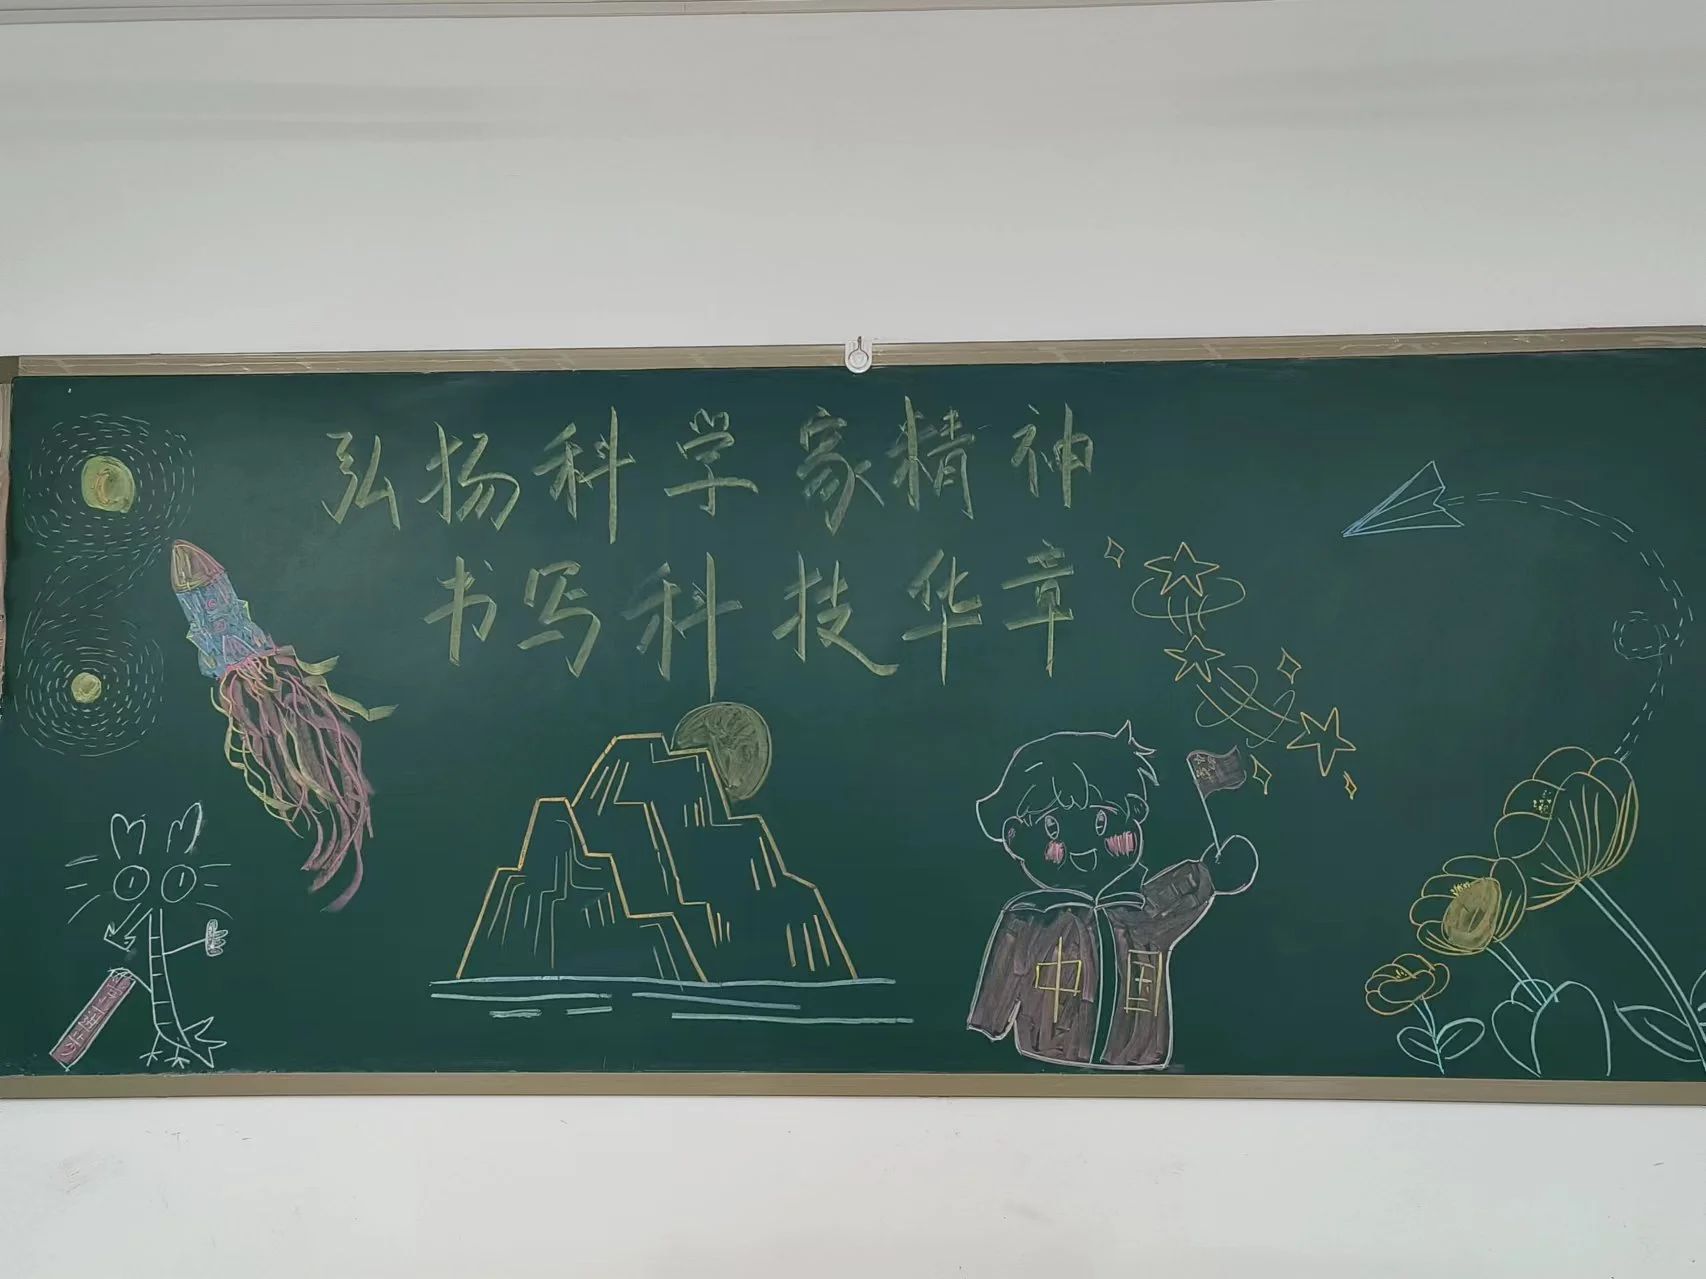 弘扬科学家精神
书写科技华章
中国